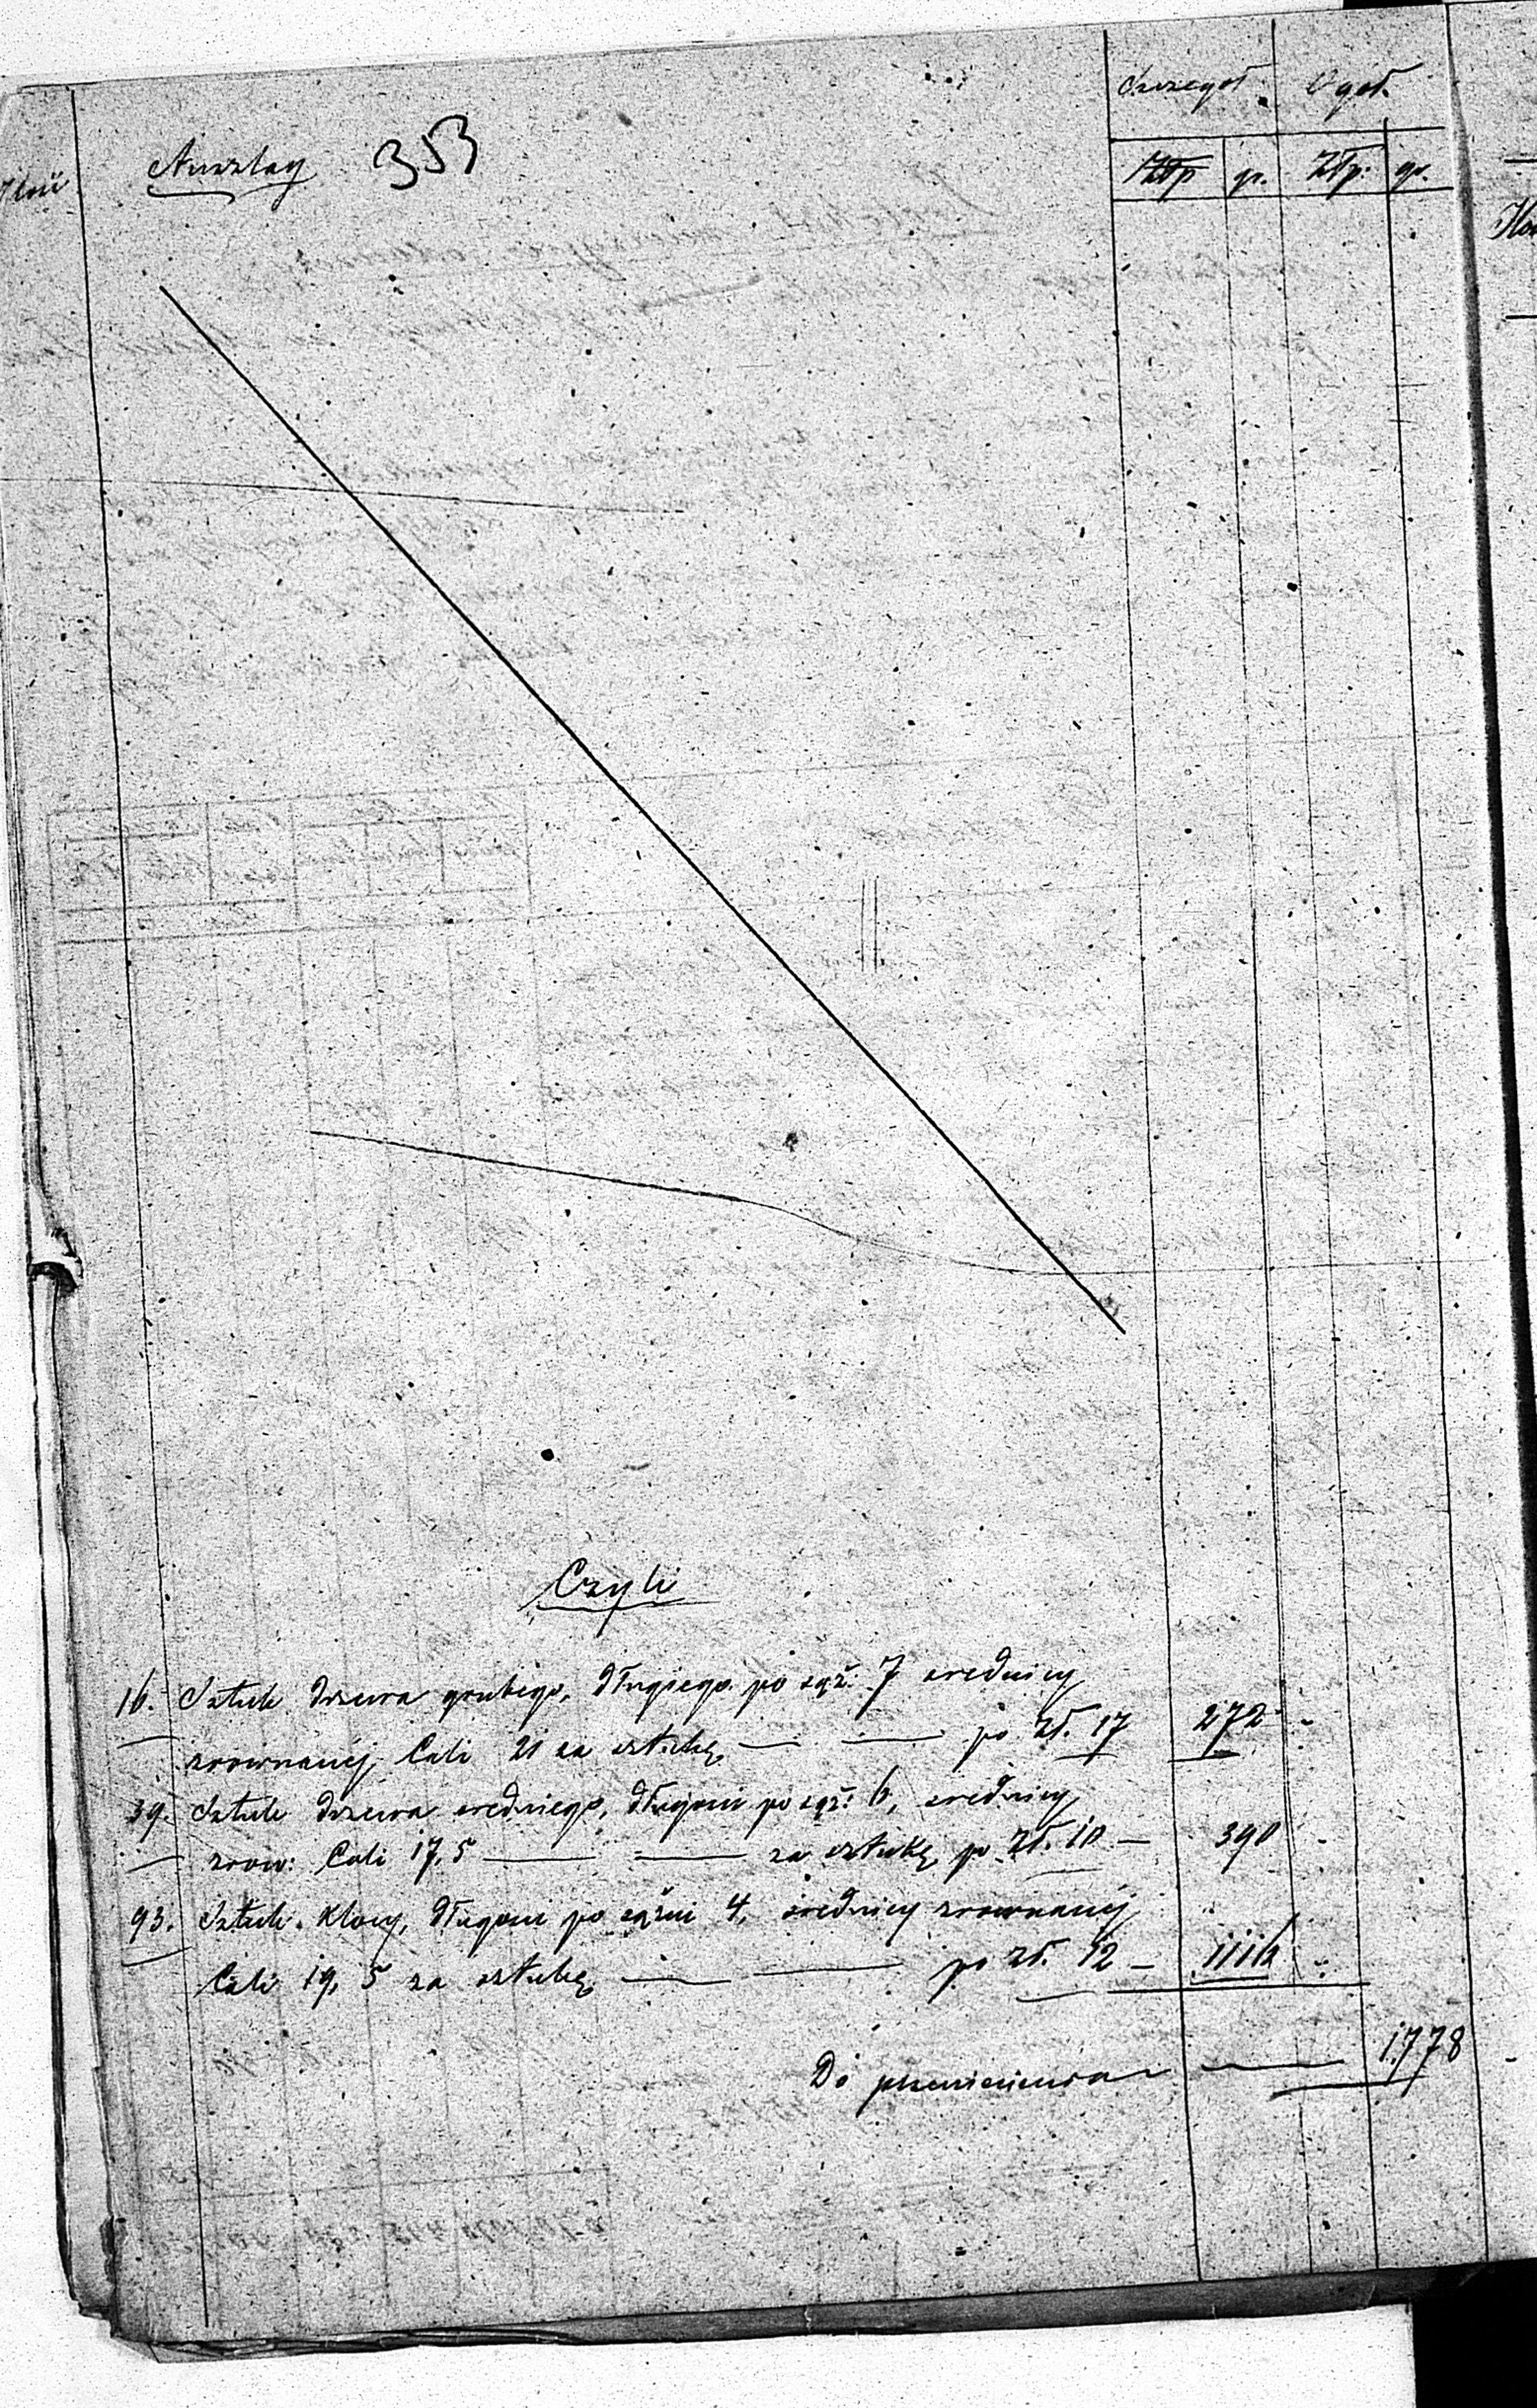 Szczegół. Ogół.
Ilość Anszlag 353 Złp gr. Złp. gr.
Czyli
16. Sztuk drzewa grubego, długiego po sąż: 7 srednicy
zrownanéj Cali 21 za sztukę — — po zł. 17 272 -
39. Sztuk drzewa sredniego, długosci po sąż: 6, srednicy
zrow: Cali 17,5 — — za sztukę po zł. 10 — 390 -
93. Sztuk klocy, długosci po sążni 4, srednicy zrownanéj
Cali 19,5 za sztukę — — po zł. 12 — 1116 -
Do przeniesienia — 1778 -